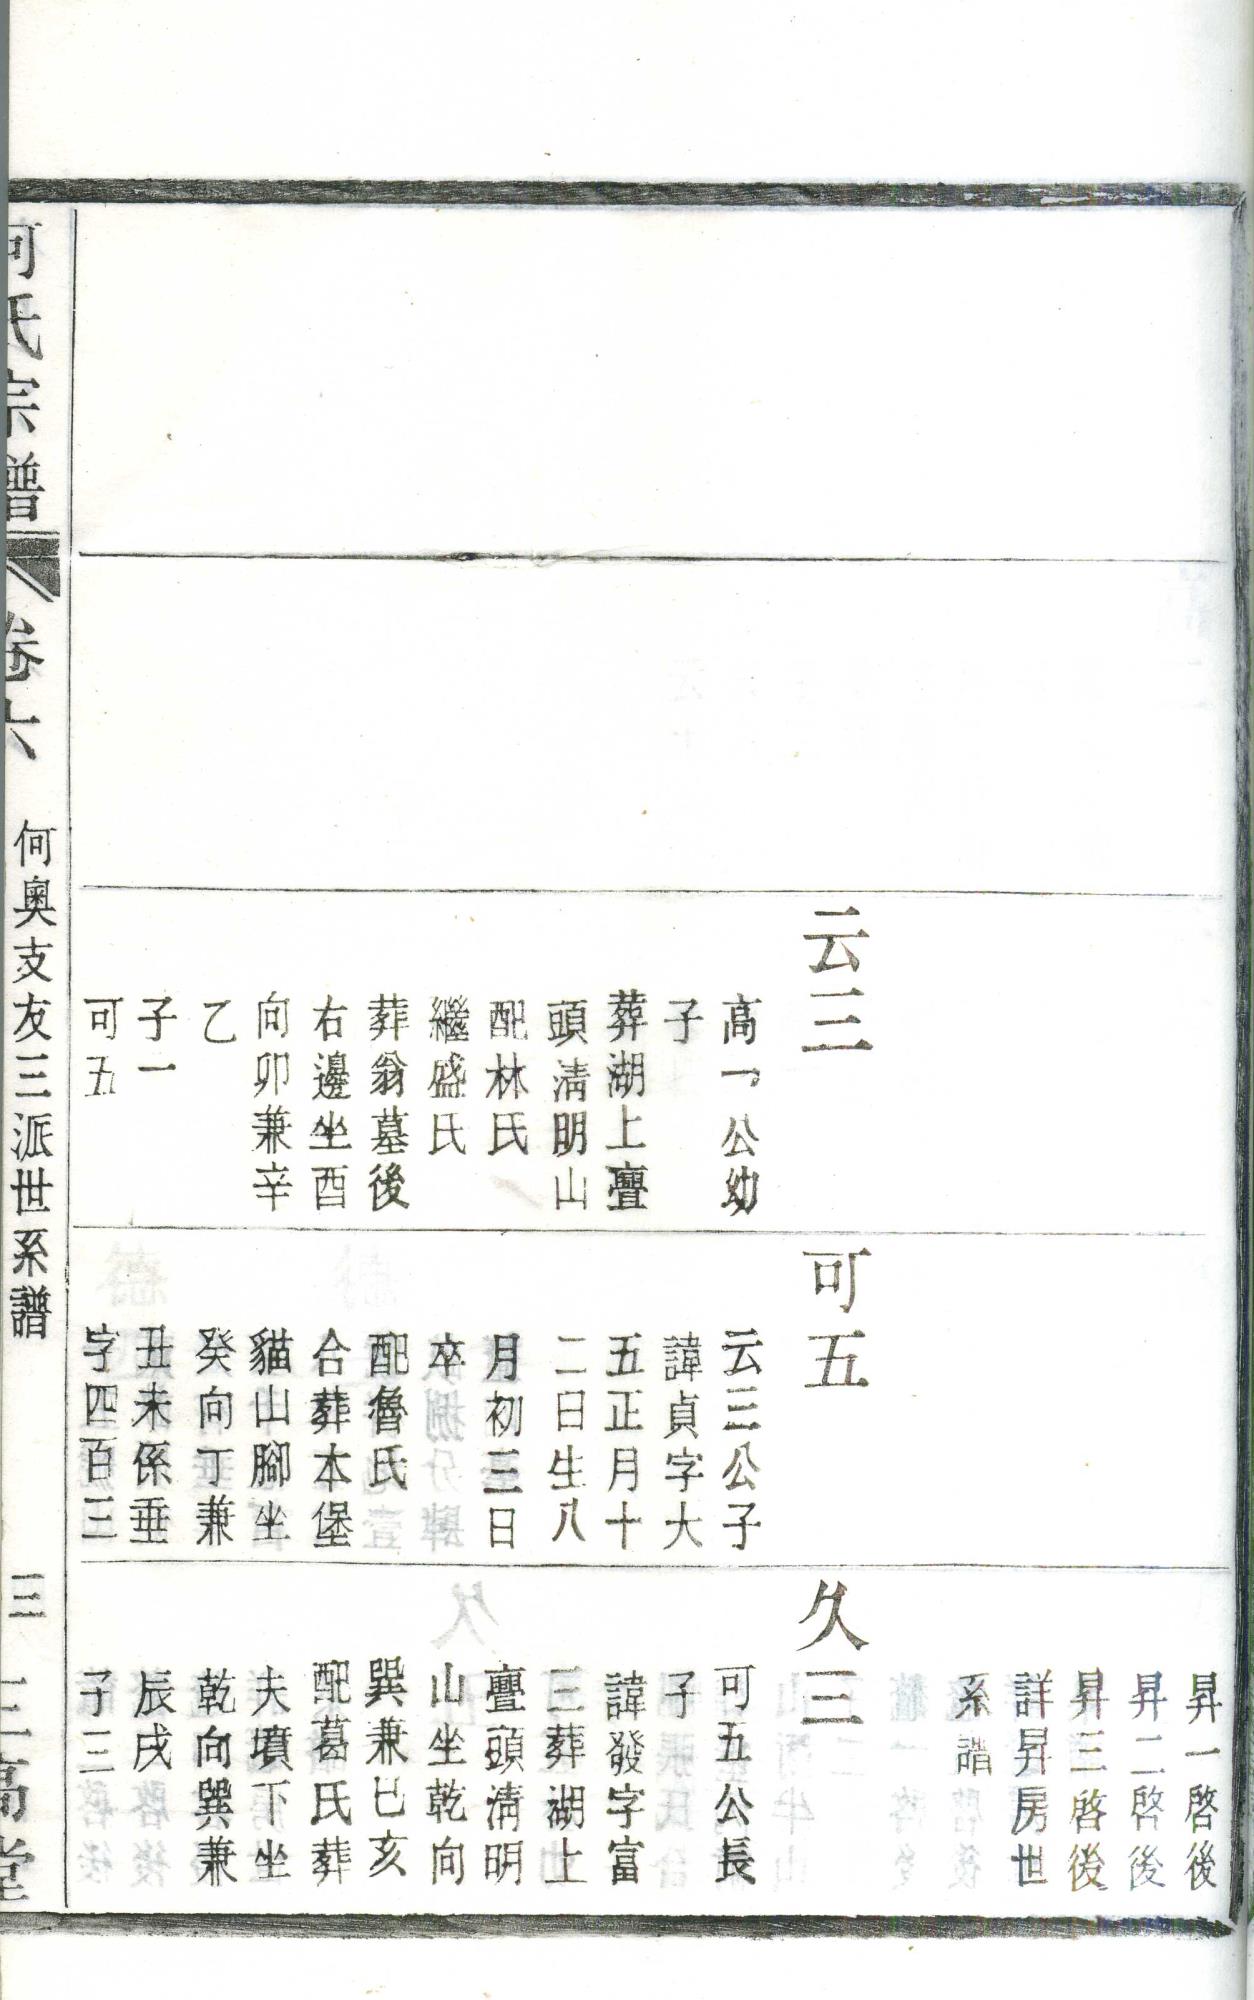 云三
高一公幼
子
葬湖上亹
頭淸明山
配林氏
繼盛氏
葬翁墓後
右邊坐酉
向卯兼辛
乙
子一
可五
可五
云三公子
諱貞字大
五正月十
二日生八
月初三日
卒
配魯氏
合葬本堡
貓山腳坐
癸向丁兼
丑未係垂
字四百三
昇一啓後
昇二啓後
昇三啓後
詳昇房世
系譜
久三
可五公長
子
諱發字富
三葬湖上
亹頭淸明
山坐乾向
巽兼巳亥
配葛氏葬
夫墳下坐
乾向巽兼
辰戌
子三
何氏宗譜
卷六
何奧支友三派世系譜
三
三高堂